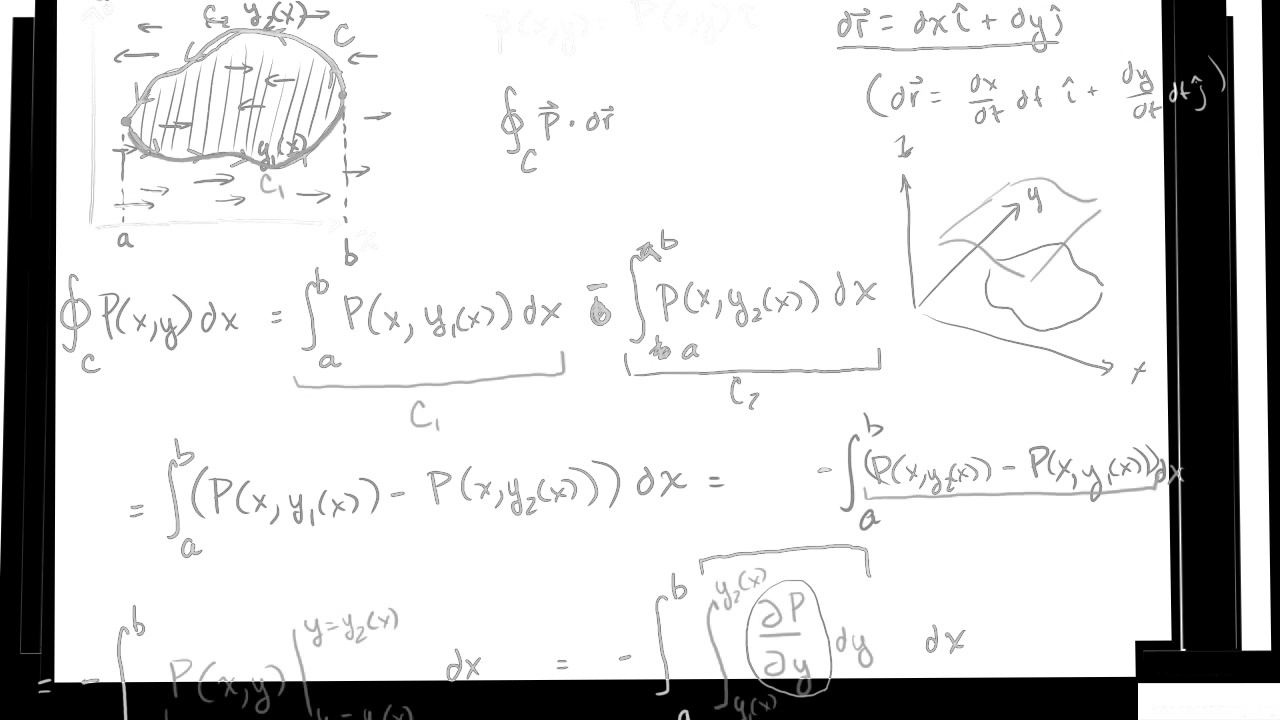 C₂ y₂(x)
C
y₁(x)
C₁
a b
∮_C P⃗ · dr⃗
dr⃗ = dx î + dy ĵ
(dr⃗ = dx/dt dt î + dy/dt dt ĵ)
y
x
∮_C P(x,y) dx = ∫_a^b P(x, y₁(x)) dx - ∫_a^b P(x,y₂(x)) dx
C₁ C₂
= ∫_a^b (P(x,y₁(x) - P(x,y₂(x))) dx = - ∫_a^b (P(x,y₂(x)) - P(x,y₁(x))) dx
= - ∫^b P(x,y) |^{y=y₂(x)}_{y=y₁(x)} dx = - ∫_a^b ∫_{y₁(x)}^{y₂(x)} ∂P/∂y dy dx